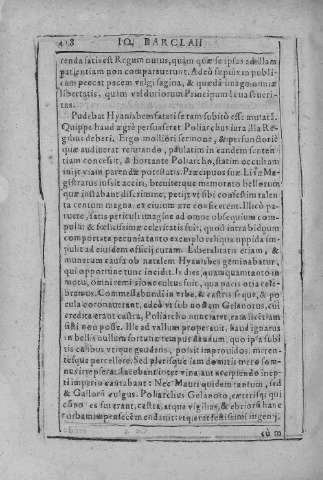 418 IO. BARCLAII
renda satis est Regum onus, quàm quæ se ipsas ad illam
patientiam non compararunt. Adeò sæpius in publicam
peccat pacem vulgi sagina, & quædā imago nimiæ
libertatis, quàm vel durior in Principum
tas.
Pudebat Hyanisbem fati si tam subitò esset mutata.
Quippe haud ægrè persuaserat Poliarchus iura illa Regibus
deberi. Ergo molliori sermone, & perfunctoriè
quæ audiuerat reiterato, paulatim in eandem sententiam
concessit, & hortante Poliarcho, statim occultam
iniit viam parendæ potestatis. Præcipuos suæ Lixæ Magistratus
iussit acciri, breuiterque memorato bellorum
quæ instabant discrimine, petijt vt sibi confestim talenta
centum magna ex ciuium ære conficerent. Illico paruere,
satis periculi imagine ad omne obsequium compulsi:
& fœlicissimæ celeritatis fuit, quod intra biduum
comportatæ pecuniæ tanto exemplo reliqua oppida impulit
ad eiusdem officij curam. Liberalitatis etiam, &
munerum causa ob natalem Hyanisbes geminabatur,
qui opportunè tunc incidit. Is dies, quanquam tanto in
motu, omni remissione cultus fuit, qua pacis otia celebramus.
Commessabundi in vrbe, & castris Regum, & pocula
coronauerant, adeò vt sub noctem Gelanorus, cui
credita erant castra, Poliarcho nunciaret, eam licentiam
sisti non posse. Ille ad vallum properauit, haud ignarus
in bellis nullum fortunæ tempus dandum, quo ipsa subitis
casibus vtique gaudens, possit improuidos, mœrentesque
percellere. Sed plerisque iam domitis mero somnus
irrepserat. Iacebant inter vina, aut accipiendo inepti
imperio cantabant: Nec Mauri quidem tantum, sed
& Gallorū vulgus. Poliarchus Gelanoro, cæterisque qui
cū eo fuerant, castra, atque vigilias, & ebriorū hanc
turbam impensè cōmendauit: vt que rat festissimi ingenij,
cùm